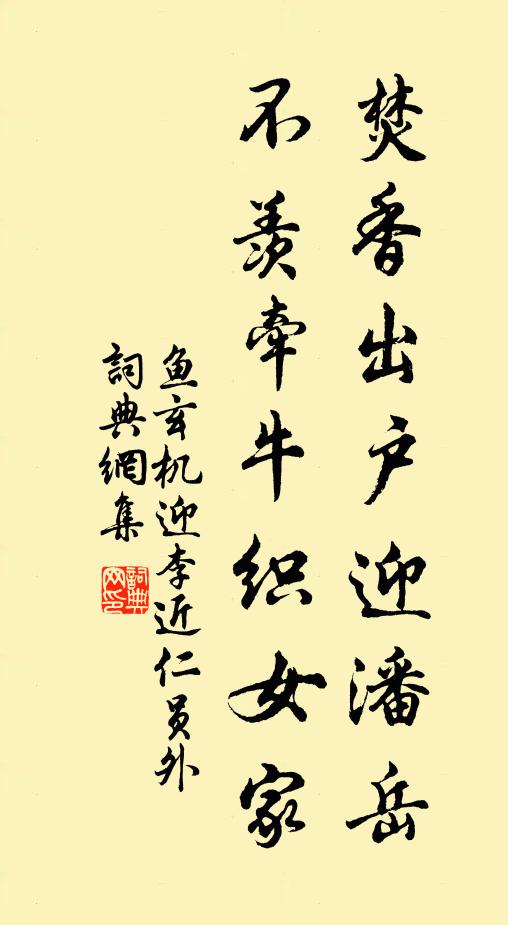 焚香出户迎潘岳
不羡牵牛织女家
鱼玄机迎李近仁员外
詞典網集
詞典
网印